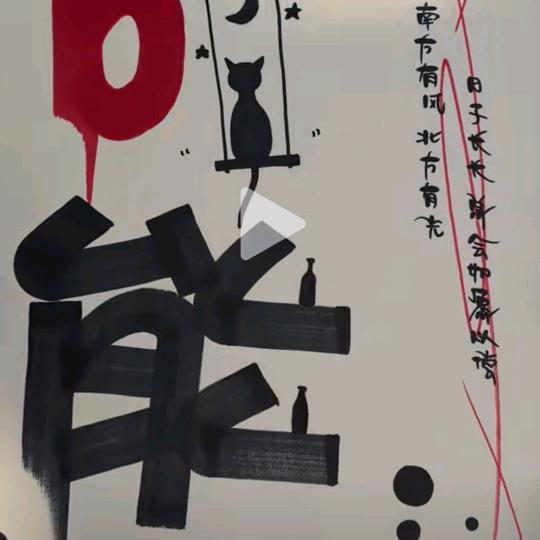 能
南方有风 北方有光
日子长长 会如愿以偿